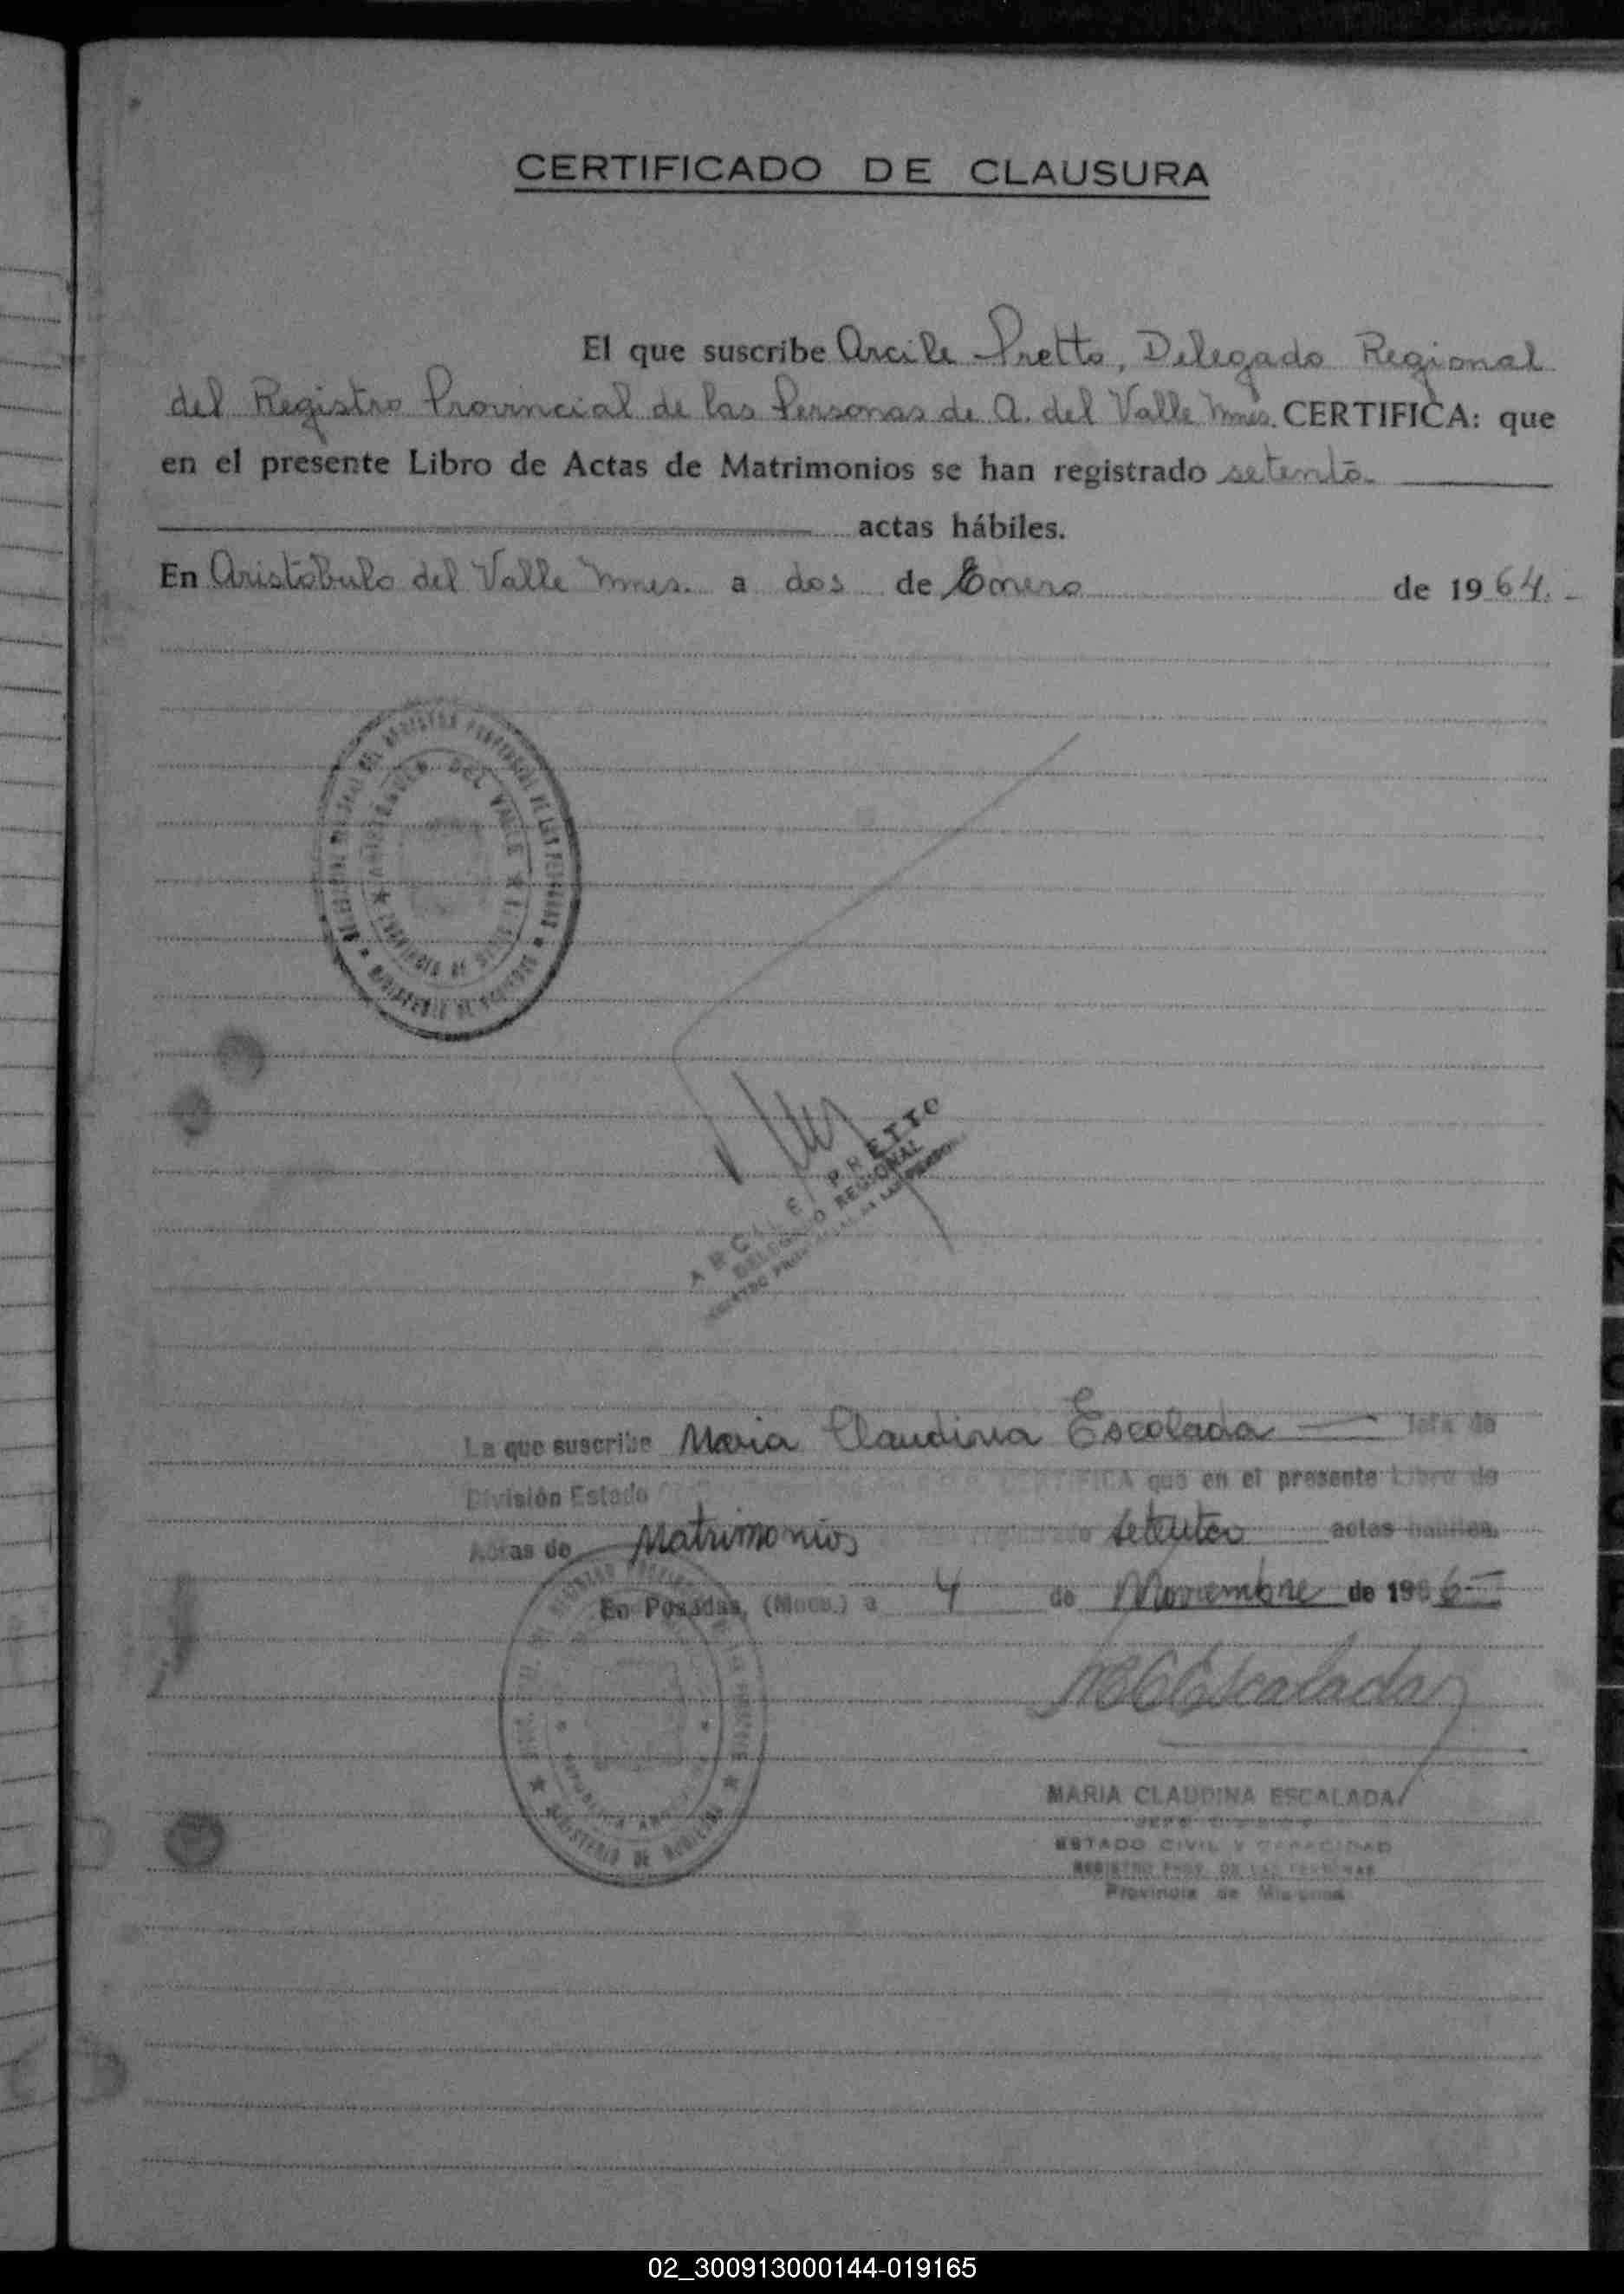 CERTIFICADO DE CLAUSURA
El que suscribe Arcile Pretto, Delegado Regional
del Registro Provincial de las Personas de A. del Valle Mnes. CERTIFICA: que
en el presente Libro de Actas de Matrimonios se han registrado setenta
actas hábiles.
En Aristóbulo del Valle Mnes. a dos de Enero de 1964.-
DEL VALLE
ARCILE PRETTO
DELEGADO REGIONAL
La que suscribe Maria Claudina Escalada Jefa de
División Estado CERTIFICA que en el presente Libro de
Actas de Matrimonios setenta actas habiles.
En Posadas, (Mnes.) a 4 de Noviembre de 1966
MINISTERIO DE GOBIERNO
MCEscalada
MARIA CLAUDINA ESCALADA
ESTADO CIVIL Y CAPACIDAD
REGISTRO PROV. DE LAS PERSONAS
Provincia de Misiones
02_300913000144-019165